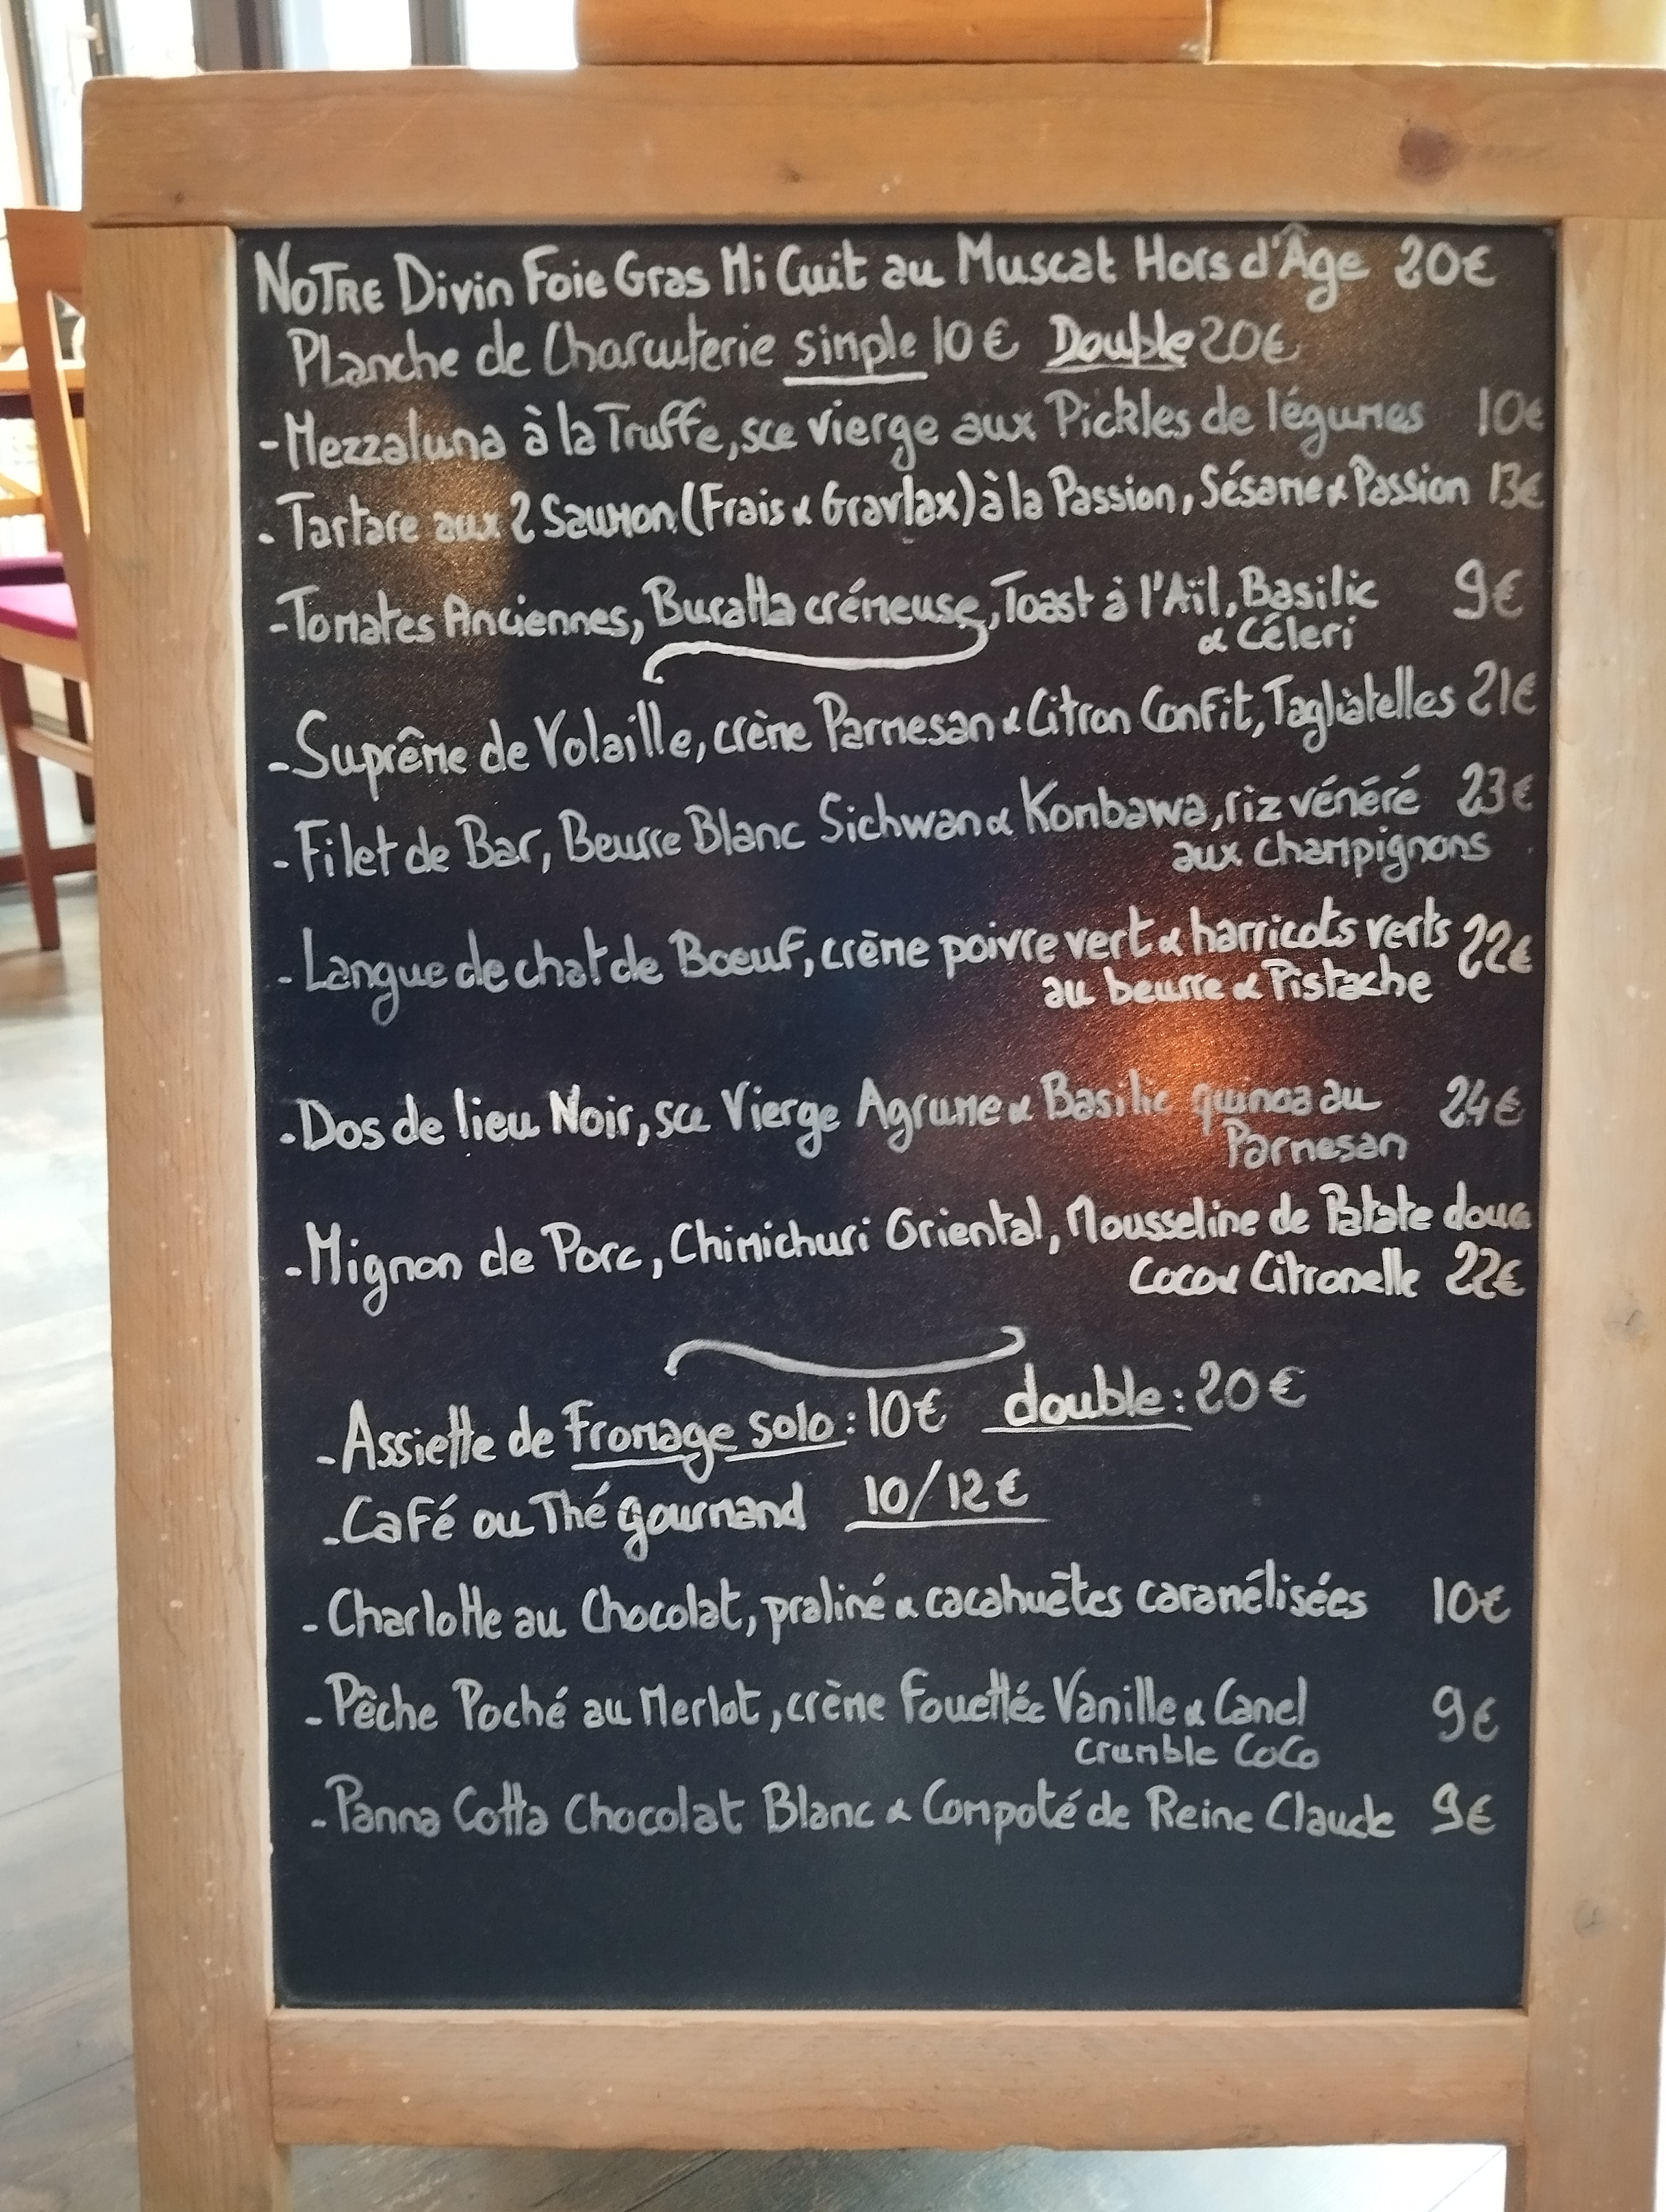 NOTRE Divin Foie Gras Mi Cuit au Muscat Hors d'Âge 20€
Planche de Charcuterie simple 10€ Double 20€
-Mezzaluna à la Truffe, sce vierge aux Pickles de légumes 10€
-Tartare aux 2 Saumon (Frais & Gravlax) à la Passion, Sésame & Passion 13€
-Tomates Anciennes, Buratta crémeuse, Toast à l'Aïl, Basilic 9€
& Céleri
-Suprême de Volaille, crème Parmesan & Citron Confit, Tagliatelles 21€
-Filet de Bar, Beurre Blanc Sichwan & Kombawa, riz vénéré 23€
aux champignons
-Langue de chat de Boeuf, crème poivre vert & harricots verts 22€
au beurre & Pistache
-Dos de lieu Noir, sce Vierge Agrume & Basilic quinoa au 24€
Parmesan
-Mignon de Porc, Chimichuri Oriental, Mousseline de Patate douce
Coco & Citronelle 22€
-Assiette de Fromage solo : 10€ double : 20€
-Café ou Thé gourmand 10/12€
-Charlotte au Chocolat, praliné & cacahuètes caramélisées 10€
-Pêche Poché au Merlot, crème Fouettée Vanille & Canel 9€
Crumble CoCo
-Panna Cotta Chocolat Blanc & Compoté de Reine Claude 9€